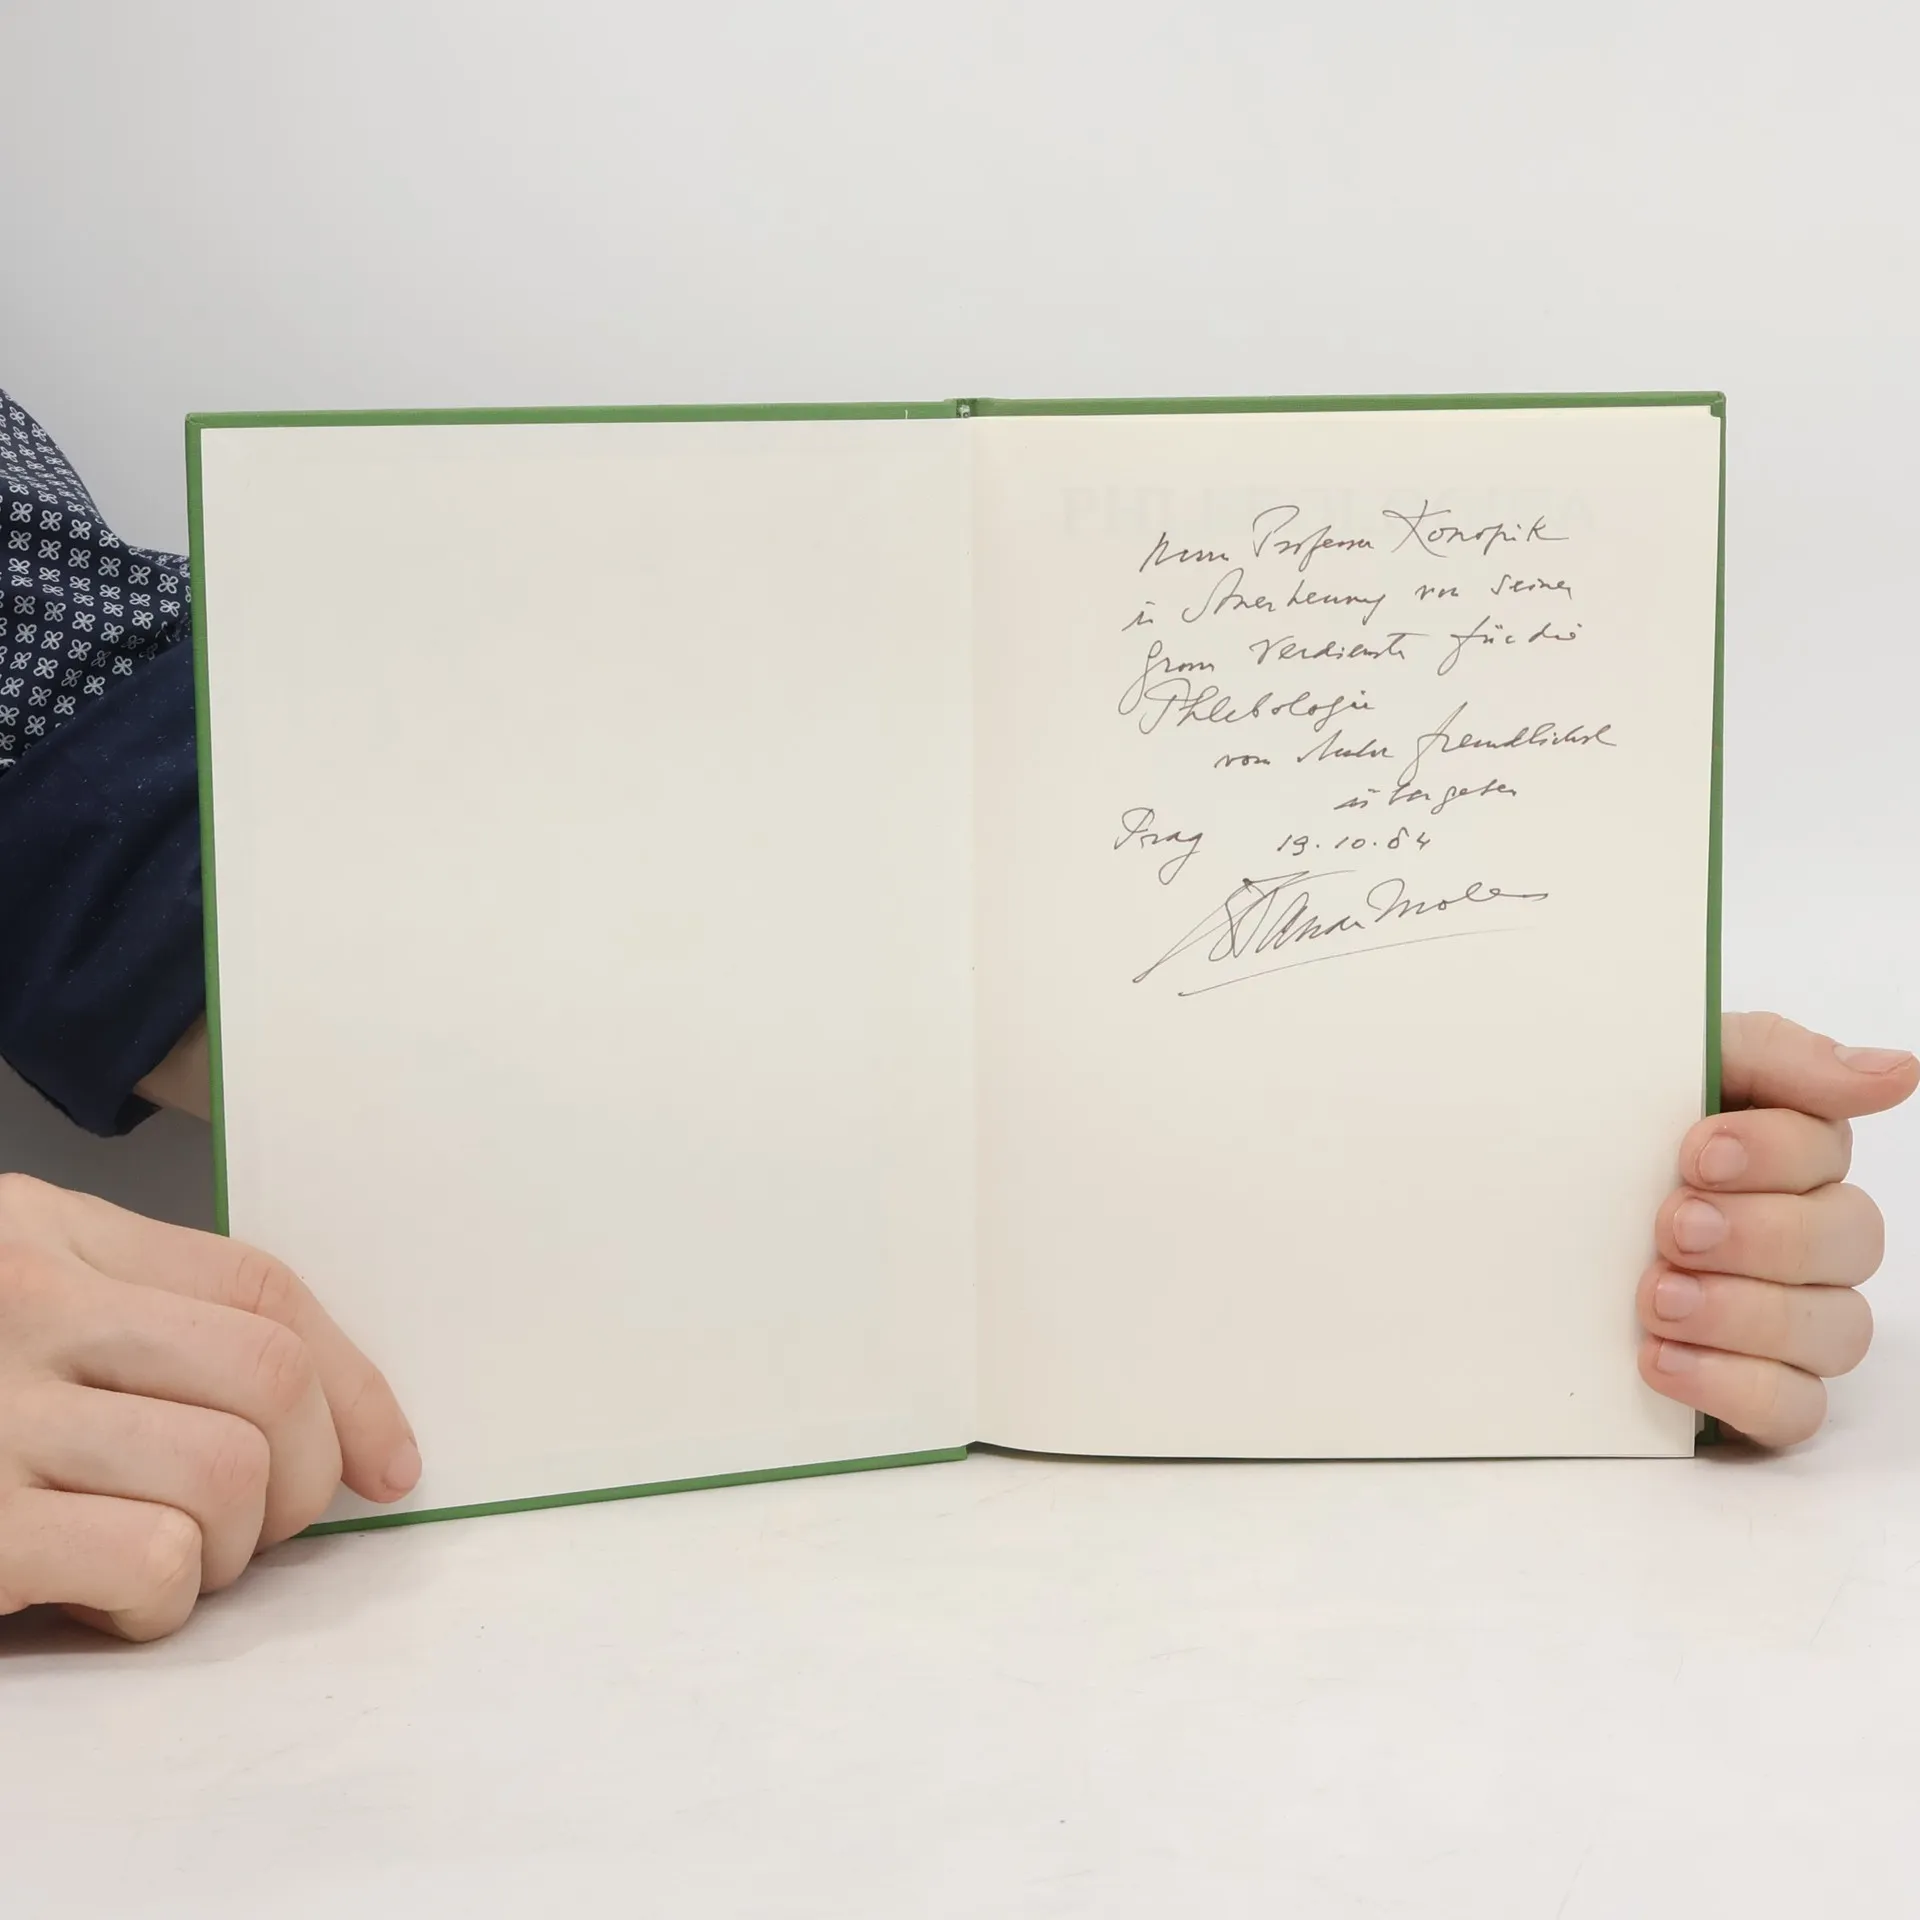 Herrn Professor Konopik
in Anerkennung von seiner
gross Verdienste für die
Phlebologie
vom Autor freundlichst
übergeben
Prag 19.10.84